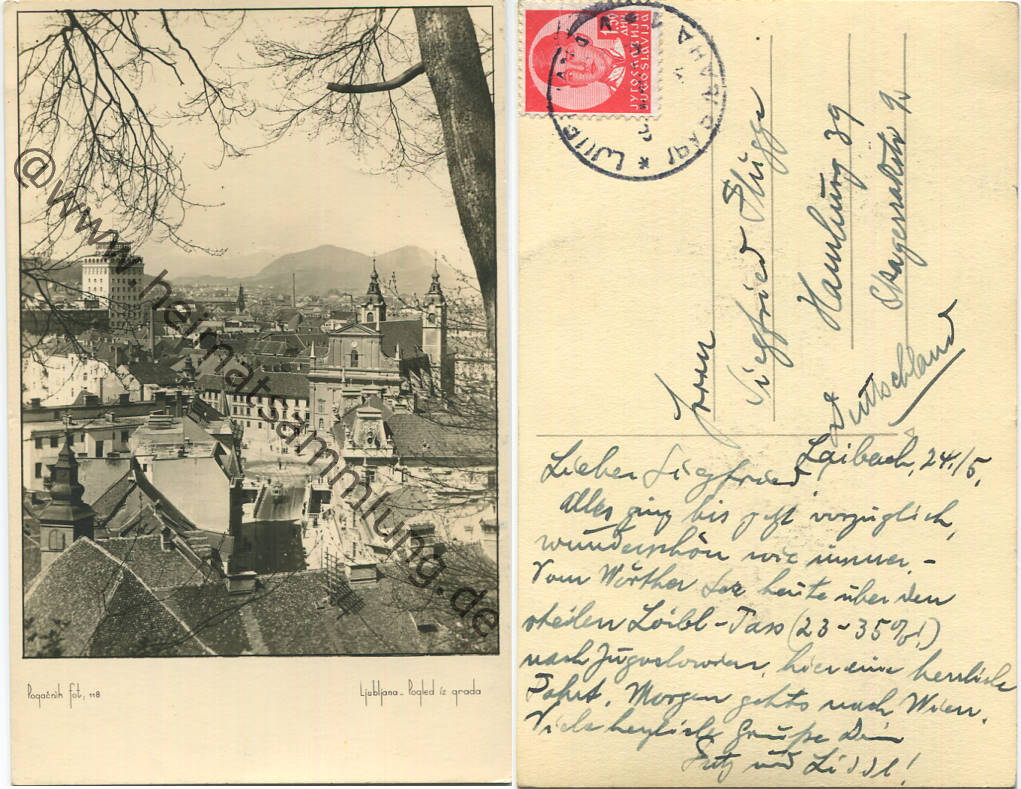 Pogačnik fot, 118
Ljubljana - Pogled iz grada
@www.heimatsammlung.de
ЈУГОСЛАВИЈА
JUGOSLAVIJA
Herrn
Siegfried Plugge
Hamburg 39
Skagerrakstr 2
Deutschland
Laibach, 24./5.
Lieber Siegfried,
Alles ging bis jetzt vorzüglich,
wunderschön wie immer. –
Vom Wörther See heute über den
steilen Loibl-Pass (23-35%!)
nach Jugoslawien, hier eine herrliche
Fahrt. Morgen gehts nach Wien.
Viele herzliche Grüße Dein
Fritz und Liddl!